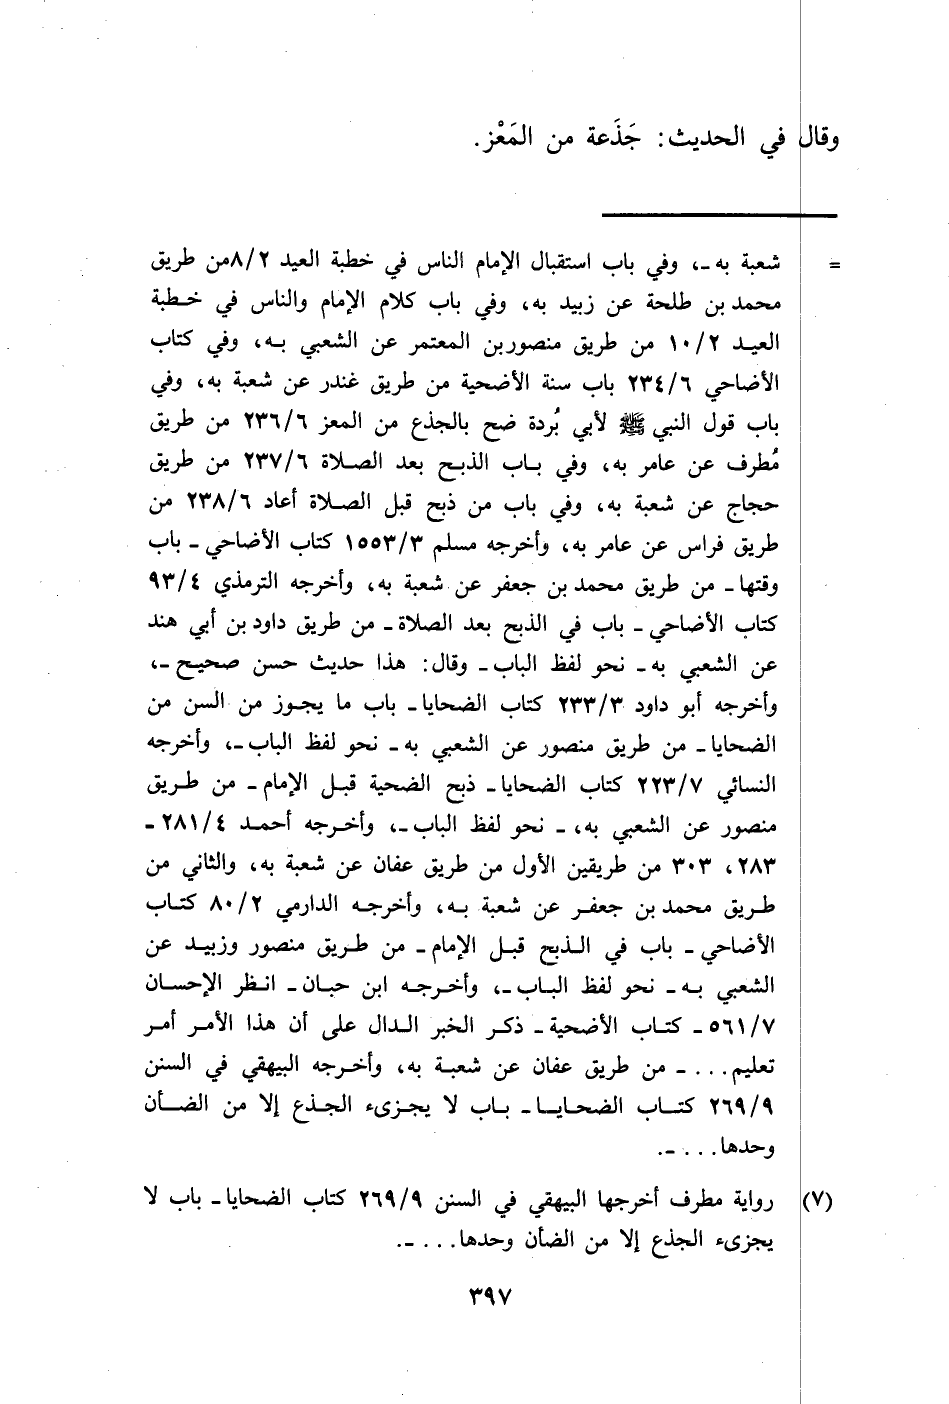 وقال في الحديث: جَذَعة من المَعْز.
= شعبة به ـ، وفي باب استقبال الإمام الناس في خطبة العيد ٨/٢من طريق
محمد بن طلحة عن زبيد به، وفي باب كلام الإمام والناس في خـطبة
العيـد ١٠/٢ من طريق منصوربن المعتمر عن الشعبي بـه، وفي كتاب
الأضاحي ٢٣٤/٦ باب سنة الأضحية من طريق غندر عن شعبة به، وفي
باب قول النبي ﷺ لأبي بُردة ضح بالجذع من المعز ٢٣٦/٦ من طريق
مُطرف عن عامر به، وفي بـاب الذبـح بعد الصـلاة ٢٣٧/٦ من طريق
حجاج عن شعبة به، وفي باب من ذبح قبل الصـلاة أعاد ٢٣٨/٦ من
طريق فراس عن عامر به، وأخرجه مسلم ١٥٥٣/٣ كتاب الأضاحي ـ باب
وقتها ـ من طريق محمد بن جعفر عن شعبة به، وأخرجه الترمذي ٩٣/٤
كتاب الأضاحي ـ باب في الذبح بعد الصلاة ـ من طريق داود بن أبي هند
عن الشعبي به ـ نحو لفظ الباب ـ وقال: هذا حديث حسن صحيـح ـ،
وأخرجه أبو داود ٢٣٣/٣ كتاب الضحايا ـ باب ما يجـوز من السن من
الضحايا ـ من طريق منصور عن الشعبي به ـ نحو لفظ الباب ـ، وأخرجه
النسائي ٢٢٣/٧ كتاب الضحايا ـ ذبح الضحية قبـل الإمام ـ من طـريق
منصور عن الشعبي به، ـ نحو لفظ الباب ـ، وأخـرجه أحمـد ٢٨١/٤ ـ
٢٨٣، ٣٠٣ من طريقين الأول من طريق عفان عن شعبة به، والثاني من
طـريق محمد بن جعفـر عن شعبة بـه، وأخرجـه الدارمي ٨٠/٢ كتـاب
الأضاحي ـ باب في الـذبح قبـل الإمام ـ من طـريق منصور وزبيـد عن
الشعبي بـه ـ نحو لفظ البـاب ـ، وأخـرجـه ابن حبـان ـ انـظر الإحسان
٥٦١/٧ ـ كتـاب الأضحية ـ ذكـر الخبر الـدال على أن هذا الأمـر أمـر
تعليم... ـ من طريق عفان عن شعبـة به، وأخـرجه البيهقي في السنن
٢٦٩/٩ كتـاب الضحايـا ـ بـاب لا يجـزىء الجـذع إلا من الضـأن
وحدها... ـ.
(٧) رواية مطرف أخرجها البيهقي في السنن ٢٦٩/٩ كتاب الضحايا ـ باب لا
يجزىء الجذع إلا من الضأن وحدها... ـ.
٣٩٧